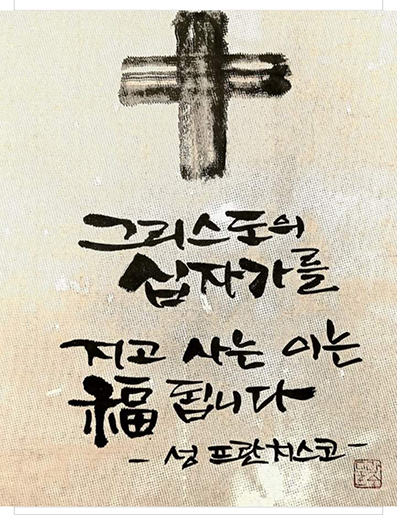 그리스도의
십자가를
지고 사는 이는
福 됩니다
- 성 프란치스코 -